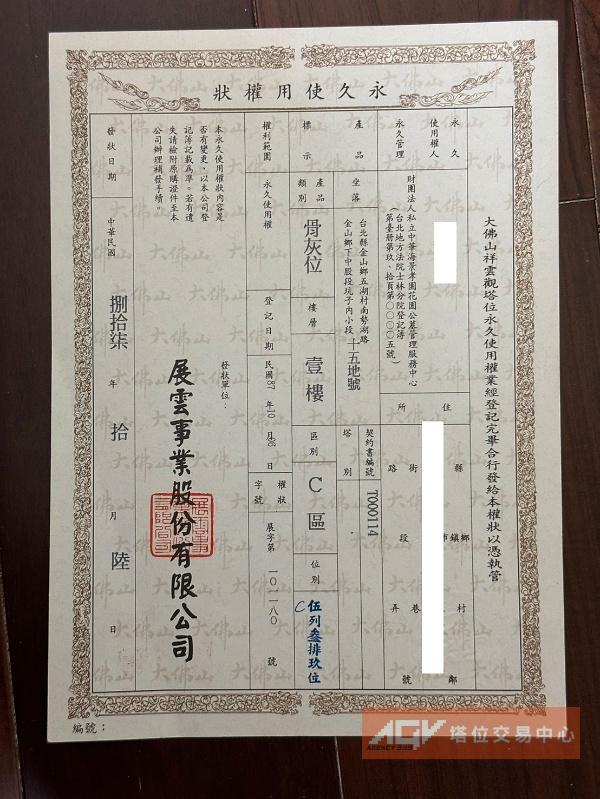 永久使用權狀
大佛山祥雲觀塔位永久使用權業經登記完畢合行發給本權狀以憑執管
永久使用權人
住所
縣 鄉鎮市 村 鄰
路街 段 巷 弄 號
永久管理
財團法人私立中華海景孝園花園公墓管理服務中心
（台北地方法院士林分院登記簿
第壹冊第玖、拾頁第○○○○五號）
產品標示
坐落
台北縣金山鄉五湖村南勢湖路
金山鄉下中股段坑子內小段 十五地號
契約書編號 T000114
產品類別 骨灰位
樓層 壹樓
區別 C區
塔別
位別 C伍列叁排玖位
權利範圍 永久使用權
登記日期 民國87年10月06日
權狀字號 展字第一○一一八○號
本永久使用權狀內容是
否有變更、以本公司登
記簿記載為準。若有遺
失請檢附原購證件至本
公司辦理補發手續。
發狀單位：
展雲事業股份有限公司
發狀日期 中華民國 捌拾柒 年 拾 月 陸 日
編號：
大佛山
AGV 塔位交易中心